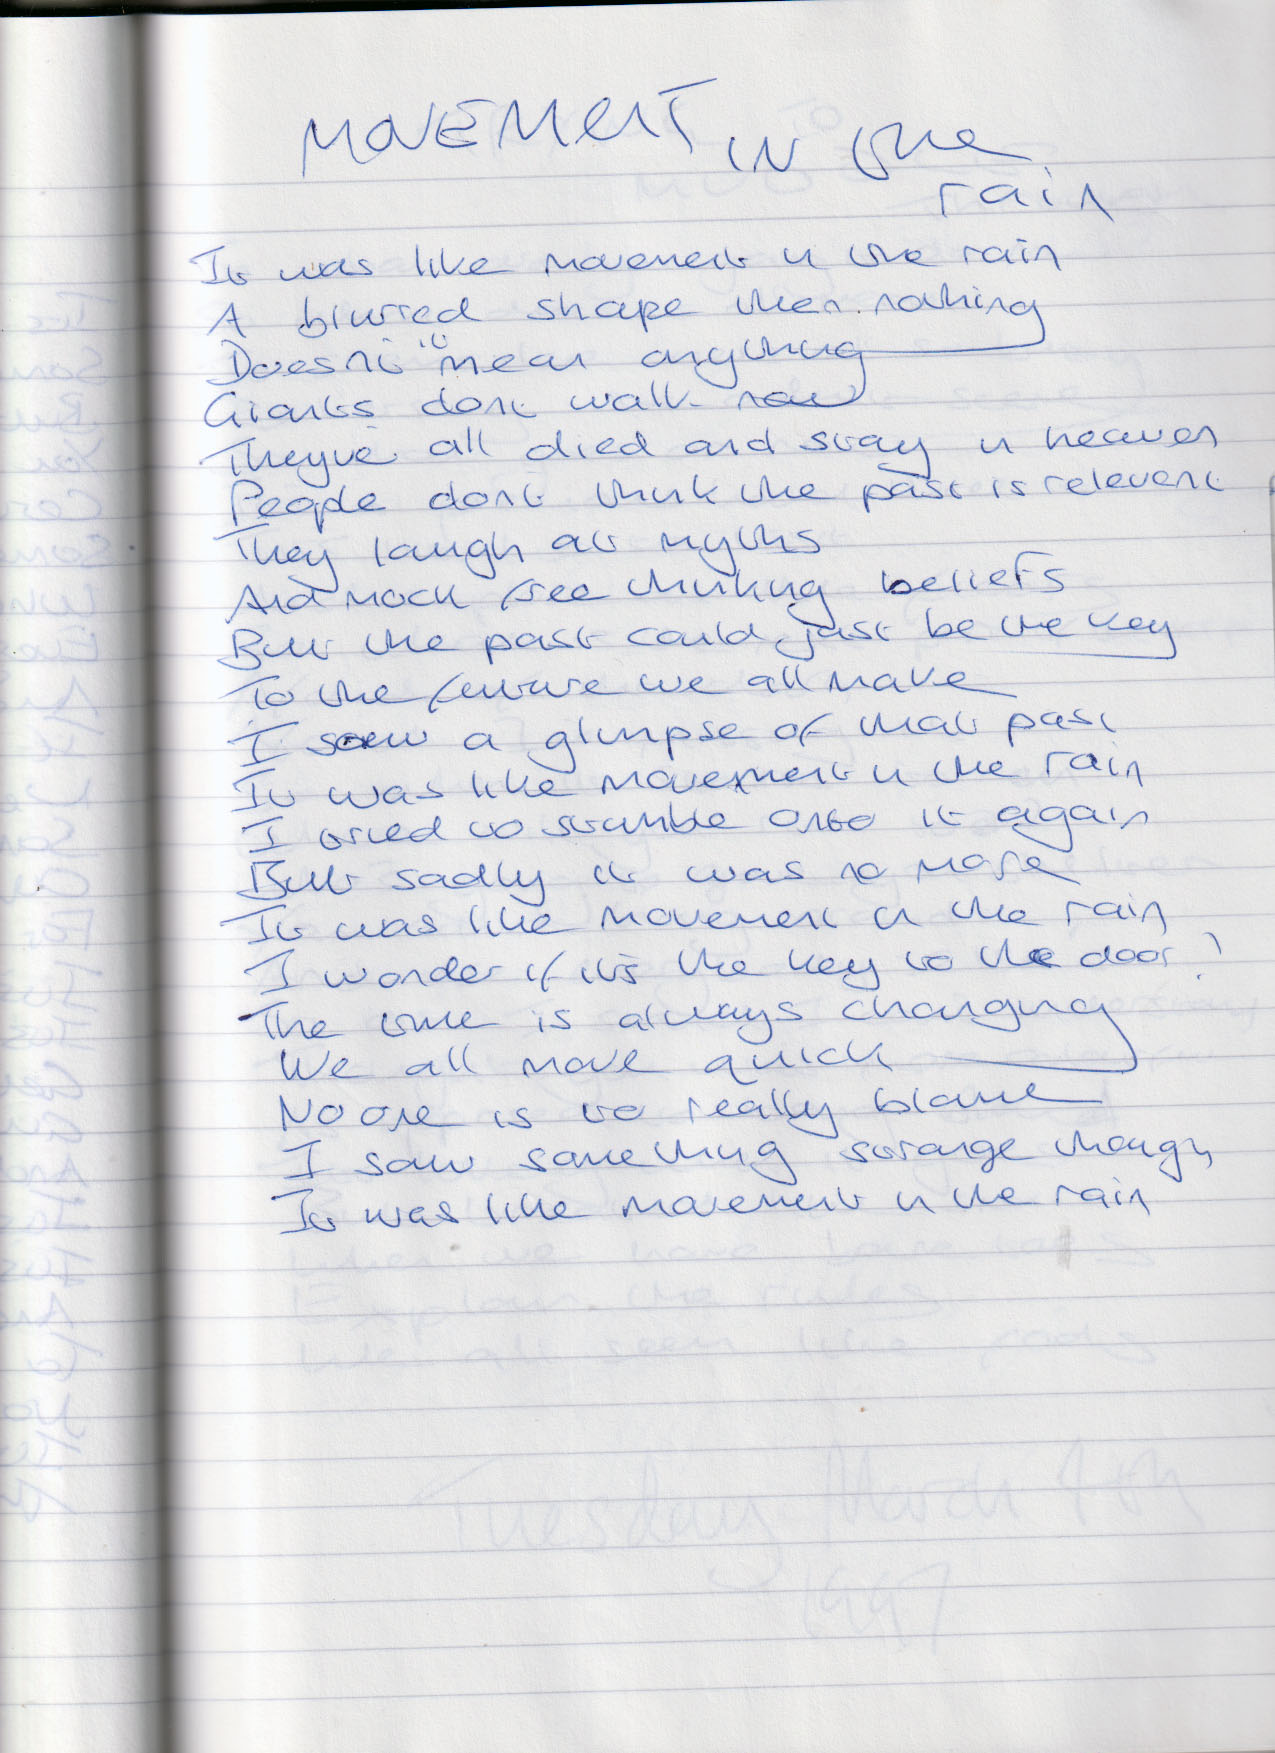 MOVEMENT in the
rain
It was like movement in the rain
A blurred shape when nothing
Doesn't mean anything
Giants dont walk now
They've all died and stay in heaven
People dont think the past is relevent
They laugh at myths
And mock free thinking beliefs
But the past could just be the key
To the future we all make
I saw a glimpse of that past
It was like movement in the rain
I tried to stumble onto it again
But sadly it was no more
It was like movement in the rain
I wonder if it's the key to the door?
The time is always changing
We all move quick
No one is to really blame
I saw something strange though
It was like movement in the rain
Tuesday March
1997